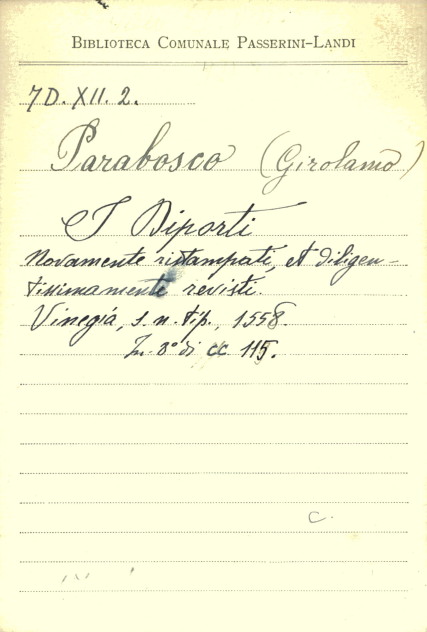 BIBLIOTECA COMUNALE PASSERINI-LANDI
7D. XII. 2.
Parabosco (Girolamo)
I Diporti
Novamente ristampati, et diligen-
tissimamente revisti.
Vinegia, s. n. tip., 1558.
In 8° di cc 115.
C.